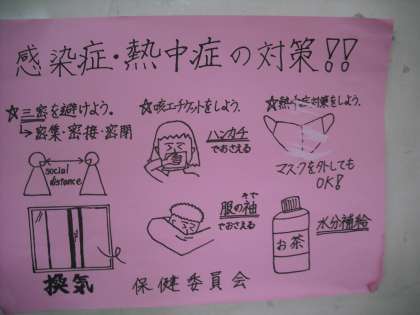 感染症・熱中症の対策!!
☆三密を避けよう。
→密集・密接・密閉
social
distance
換気
☆咳エチケットをしよう。
ハンカチ
でおさえる
服の袖
そで
でおさえる
☆熱中症対策をしよう。
マスクを外しても
OK!
お茶
水分補給
保健委員会